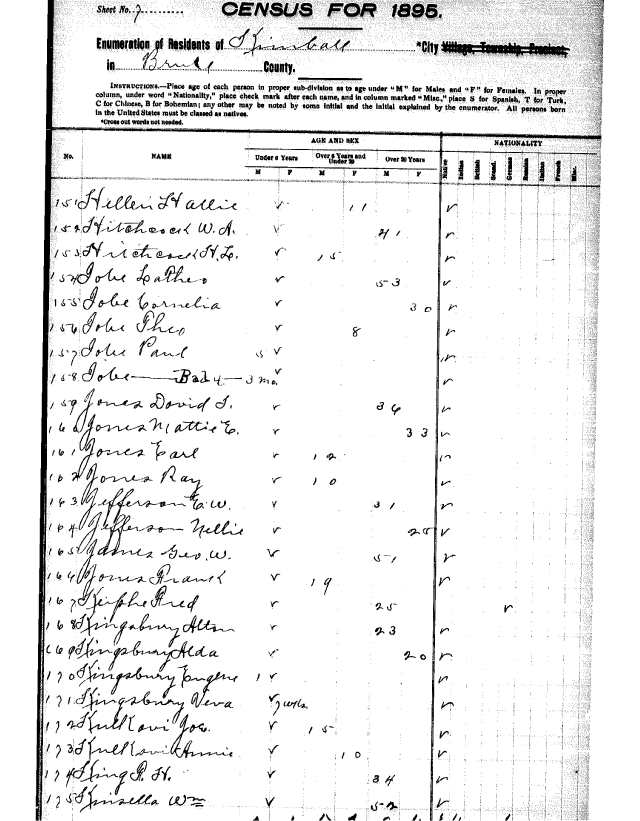 Sheet No. 7
CENSUS FOR 1895.
Enumeration of Residents of Kimball *City Village, Township, Precinct,
in Brule County.
INSTRUCTIONS.—Place age of each person in proper sub-division as to age under "M" for Males and "F" for Females. In proper
column, under word "Nationality," place check mark after each name, and in column marked "Misc.," place S for Spanish, T for Turk,
C for Chinese, B for Bohemian; any other may be noted by some initial and the initial explained by the enumerator. All persons born
in the United States must be classed as natives.
*Cross out words not needed.
AGE AND SEX NATIONALITY
No. NAME Under 6 Years Over 6 Years and Under 20 Over 20 Years Native Indian British Scand. German Russian Italian French Mis.
M F M F M F
151 Hallie ✓ 11 ✓
152 Hitchcock W. A. ✓ 41 ✓
153 Hitchcock H. L. ✓ 15 ✓
154 Jobe ✓ 53 ✓
155 Jobe Cornelia ✓ 30 ✓
156 Jobe Theo ✓ 8 ✓
157 Jobe Paul 5 ✓ ✓
158 Jobe — Baby — 3 mo. ✓ ✓
159 Jones David ✓ 36 ✓
160 Jones Mattie E. ✓ 33 ✓
161 Jones Earl ✓ 12 ✓
162 Jones Ray ✓ 10 ✓
163 Jefferson E. W. ✓ 31 ✓
164 Jefferson Nellie ✓ ✓
165 James Geo. W. ✓ 51 ✓
166 Jones Frank ✓ 19 ✓
167 Fred ✓ 25 ✓
168 Kingsbury Alton ✓ 23 ✓
169 Kingsbury Alda ✓ 20 ✓
170 Kingsbury Eugene 1 ✓ ✓
171 Kingsbury Neva ✓ 7 wks. ✓
172 Joe ✓ 15 ✓
173 Annie ✓ 10 ✓
174 King P. H. ✓ 34 ✓
175 Kinsella Wm ✓ 52 ✓